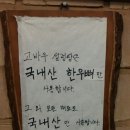 고바우 설렁탕은
국내산 한우뼈만
사용합니다.
그 외 모든 재료도
국내산만 사용합니다.